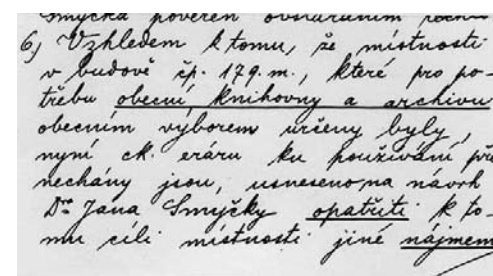 Smyčka pověřen obstaráním
6) Vzhledem k tomu, že místnosti
v budově čp. 179. m., které pro po-
třebu obecní knihovny a archivu
obecním výborem určeny byly,
nyní ck. eráru ku používání pře
nechány jsou, usneseno, na návrh
Dra Jana Smyčky opatřiti k to-
mu cíli místnosti jiné nájmem